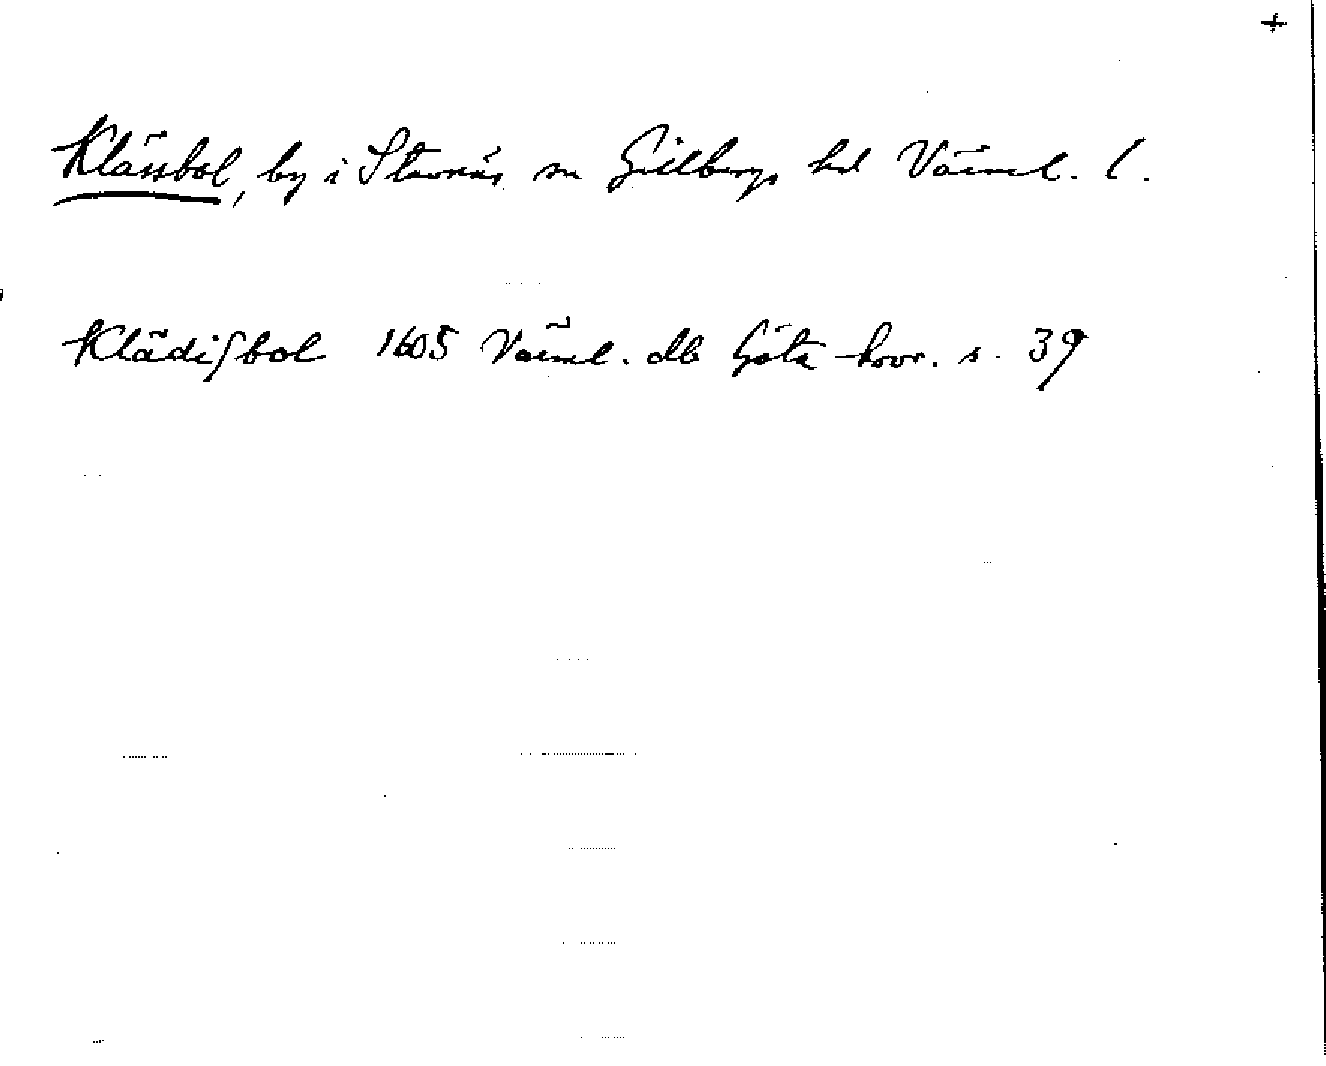 +
Klässbol, by i Stavnäs sn Gillbergs hd Värml. l.
Klädisbol 1605 Värml. db Göta hovr. s. 39